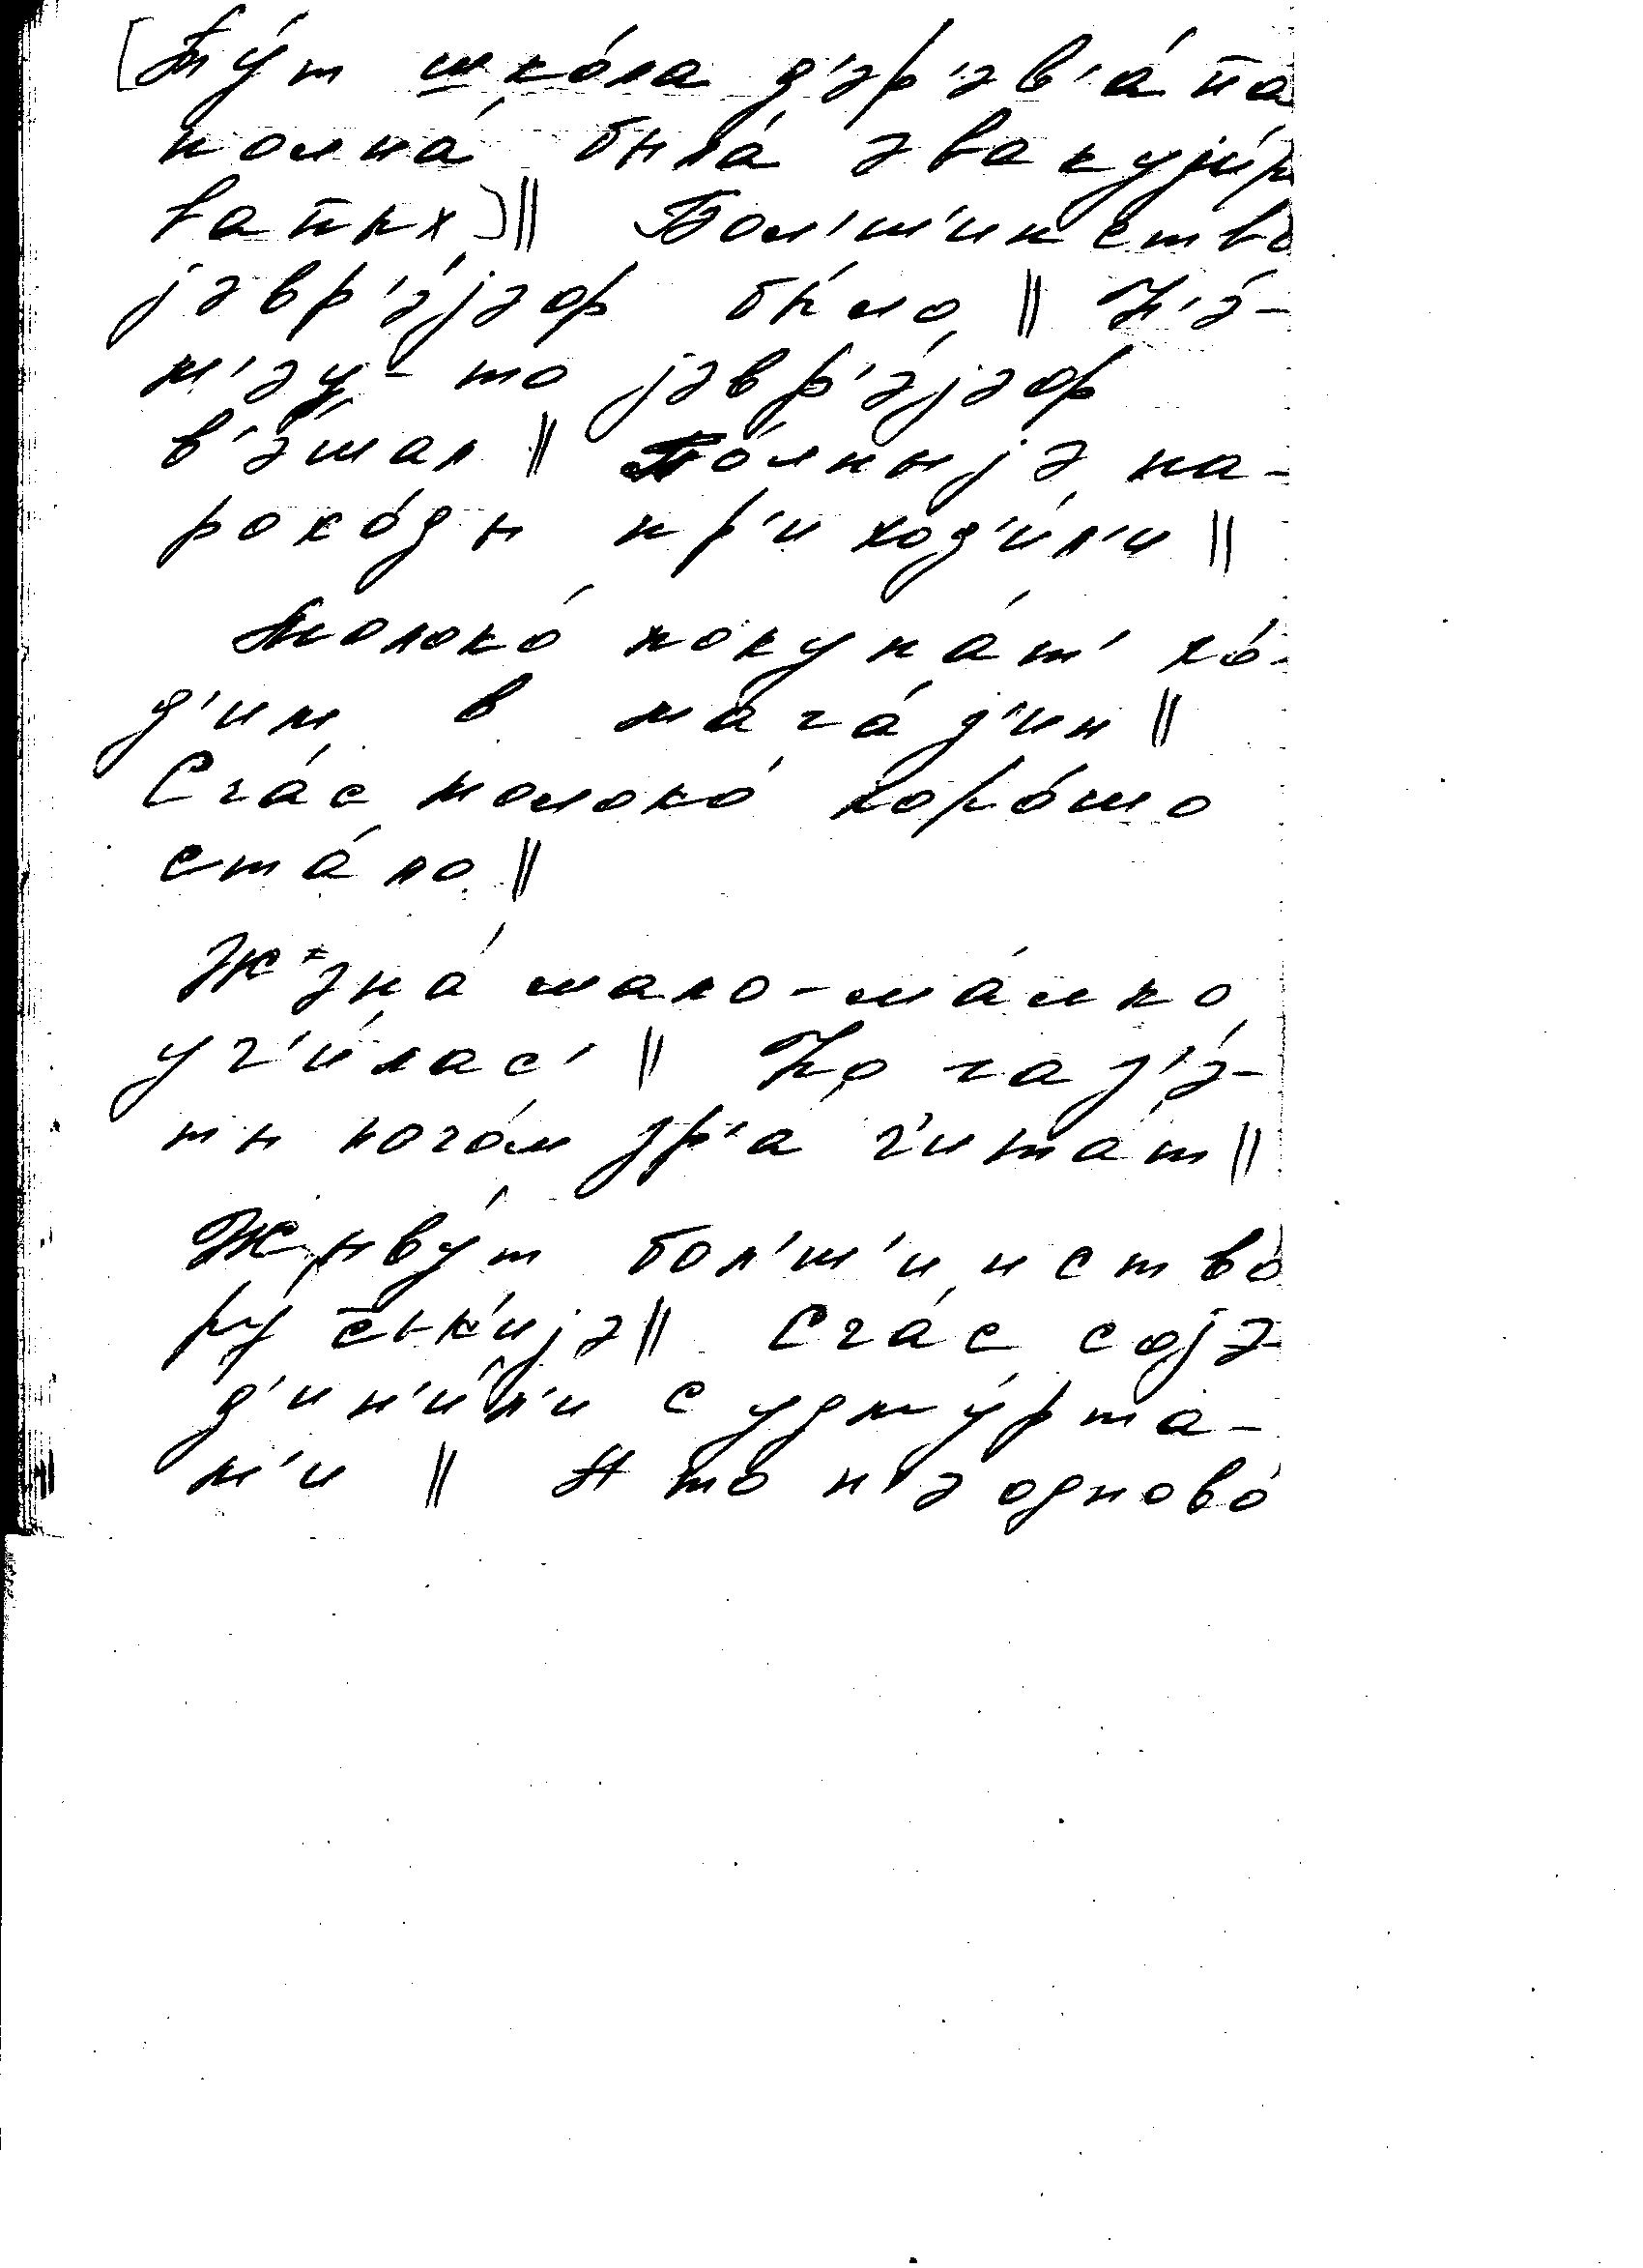 [Ту́т шко́ла д'эр'эв'а́н̄а
полна́ была́ эвакуји́ро
ван̄ых]‖ Бол'ш'инство
јэвр'э́јэф бы́ло ‖ Н'э́-
м'эц-то јэвр'э́јэф
в'э́шал ‖ По́лныјэ па-
рохо́ды пр'иход'и́л'и ‖
Молоко́ покупа́т' хо́-
д'им в мага́з'ин ‖
Счас молоко́ хорошо
ста́ло ‖
Жэна́ мало-ма́лко
уч'и́лас' ‖ Но газ'э́-
ты ногом зр'а ч'ита́т ‖
Жыву́т бол'ш'инство́
ру́с̄к'ијэ ‖ Сча́с сојэ-
д'ин'и́л'и с удму́рта-
м'и ‖ А то н'э одново́